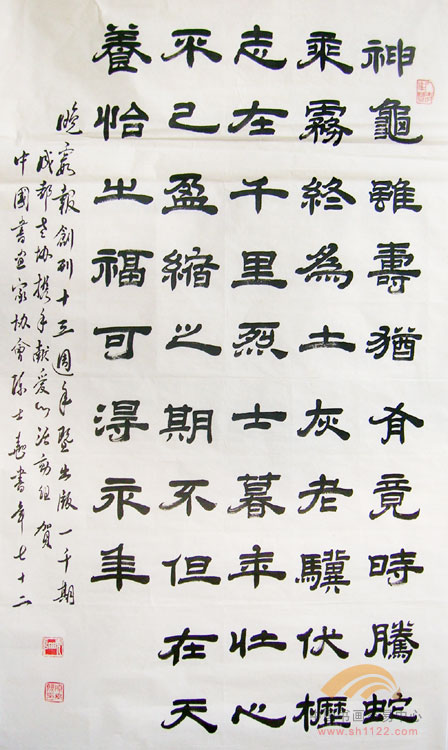 神龜雖壽猶有竟時騰蛇
乘霧終為土灰老驥伏櫪
志在千里烈士暮年壯心
不已盈縮之期不但在天
養怡之福可得永年
晚霞報創刊十三週年暨出版一千期
成都老協攜手献愛心活動組賀
中國書画家協會士書年七十二
中心
www.sh1122.com